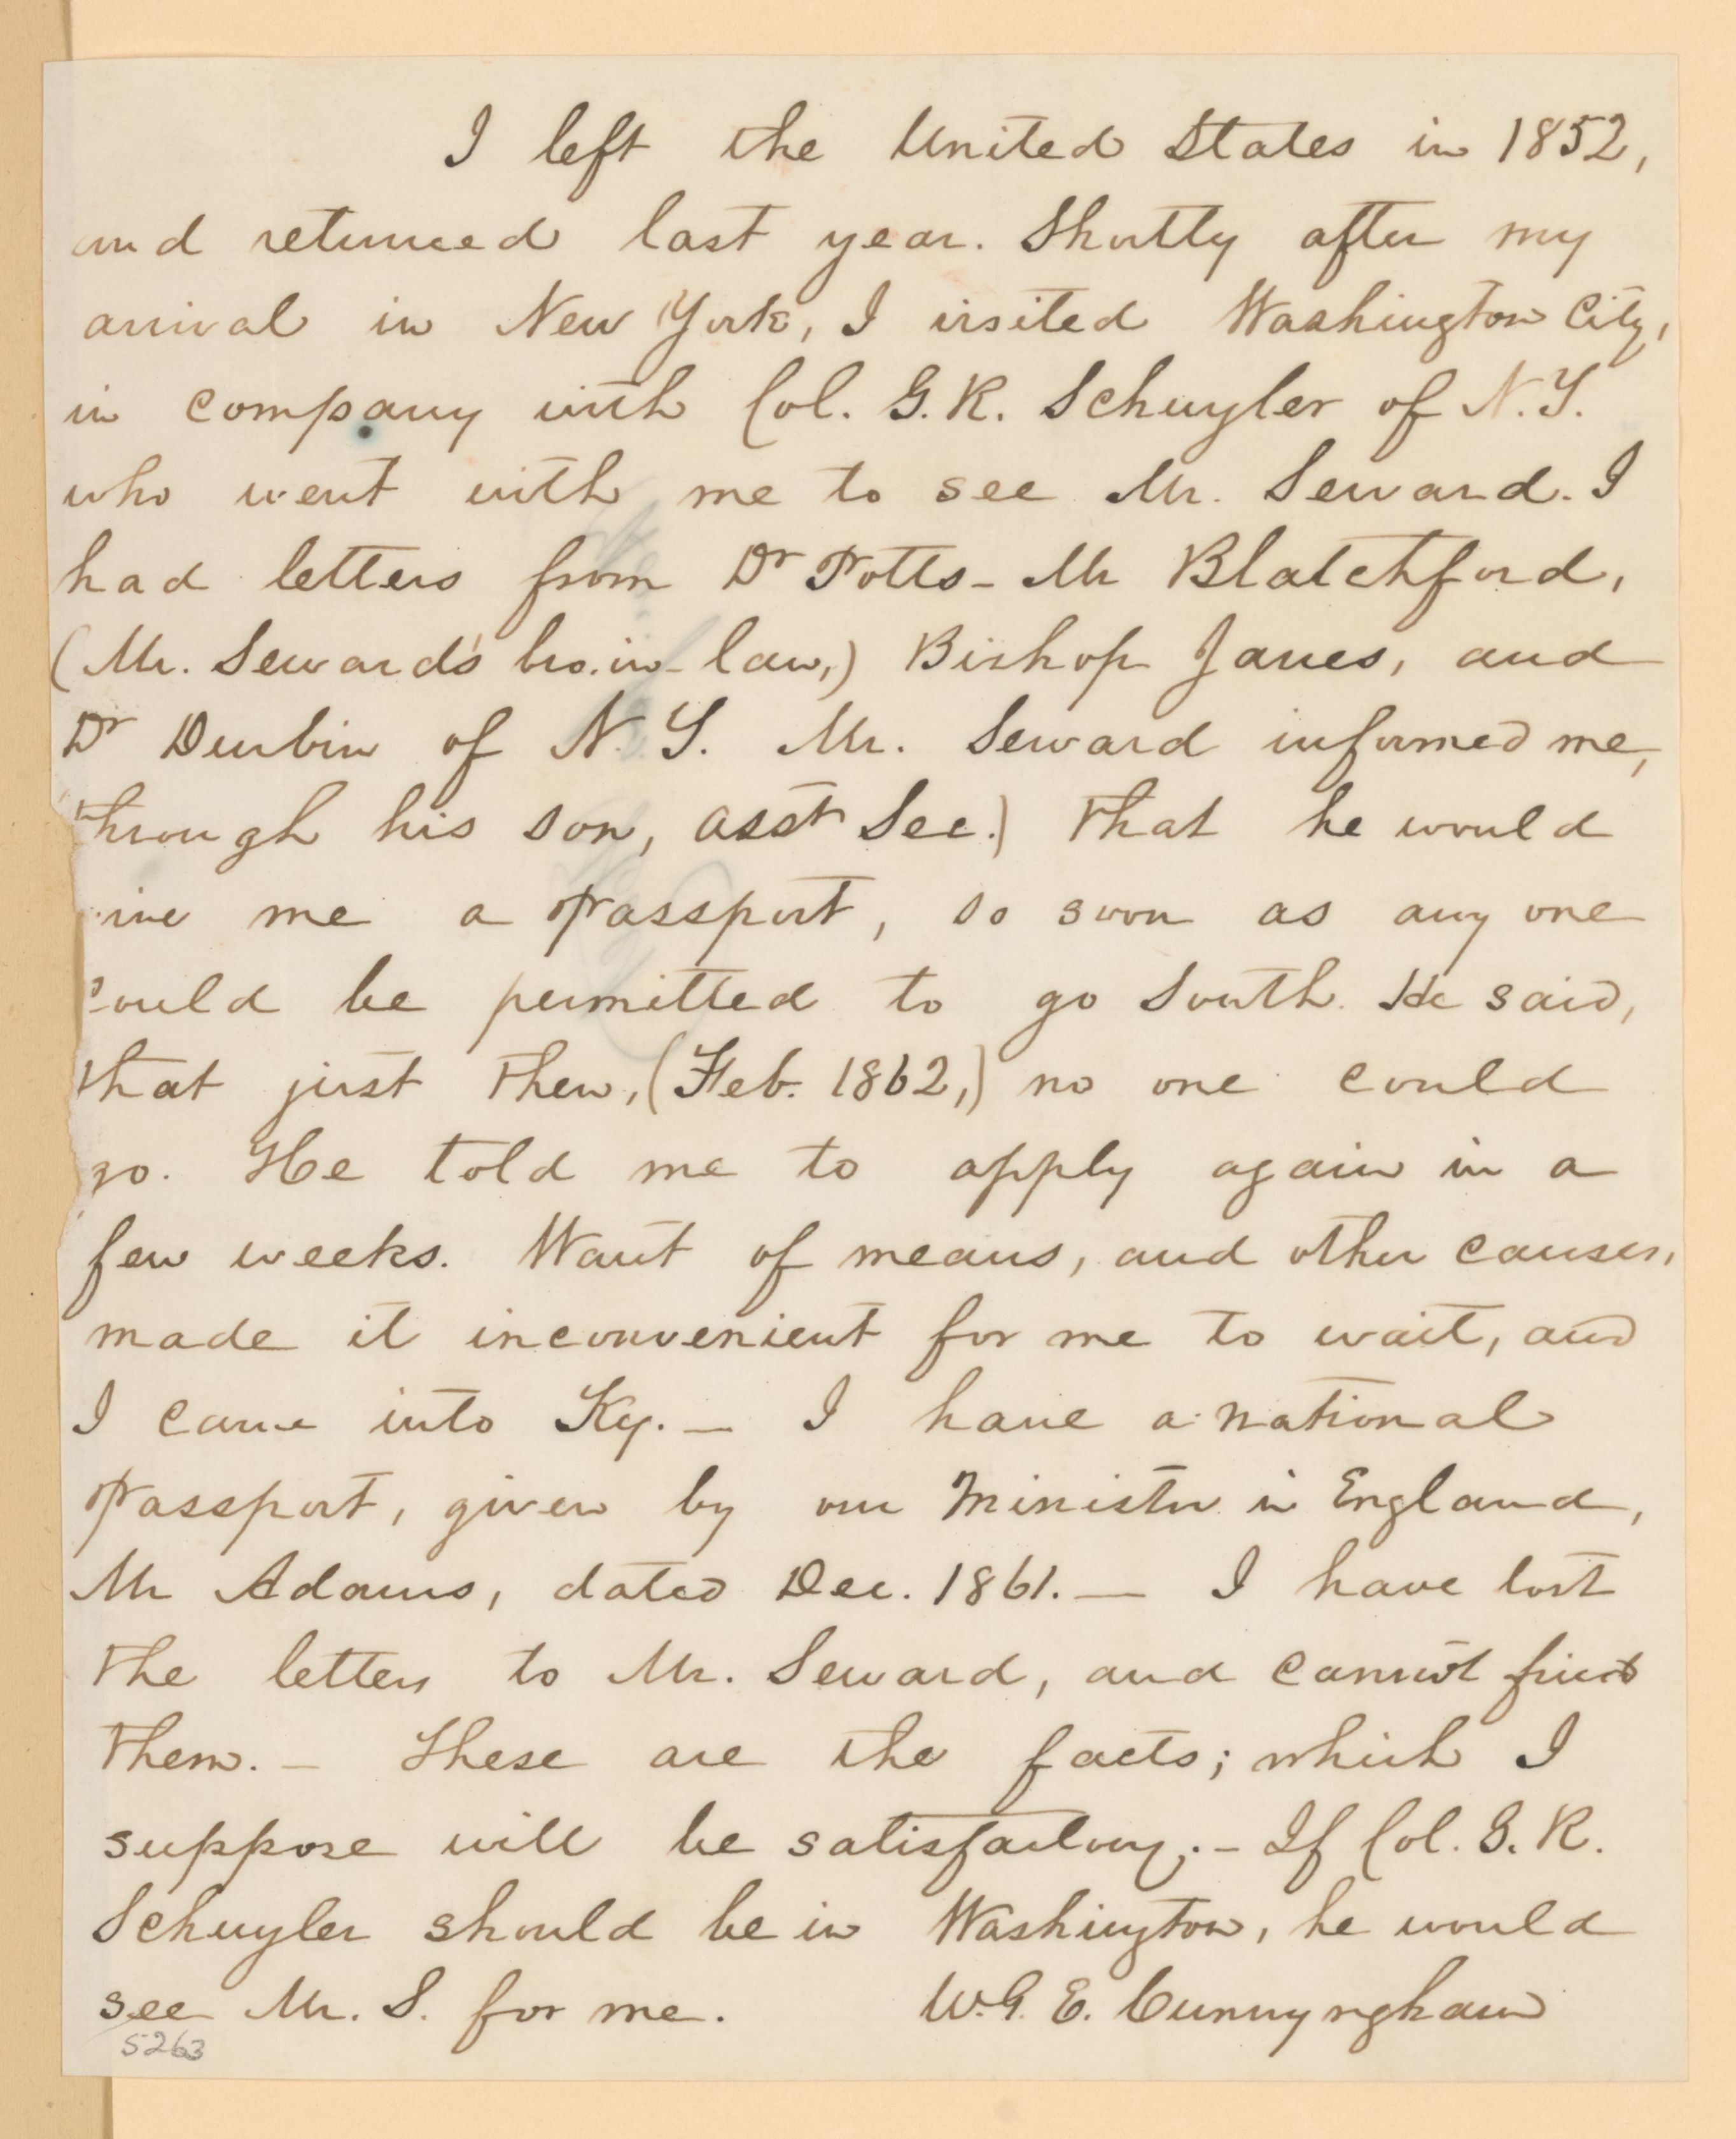 I left the United States in 1852,
and returned last year. Shortly after my
arrival in New York, I visited Washington City,
in company with Col. G. R. Schuyler of N.Y.
who went with me to see Mr. Seward. I
had letters from Dr Potts - Mr Blatchford,
(Mr. Seward's bro. in-law,) Bishop Janes, and
Dr Durbin of N.Y. Mr. Seward informed me,
through his son, asst Sec.) that he would
ive me a Passport, so soon as any one
could be permitted to go South. He said,
that just then, (Feb. 1862,) no one could
go. He told me to apply again in a
few weeks. Want of means, and other causes,
made it inconvenient for me to wait, and
I came into Ky. — I have a national
Passport, given by our Minister in England,
Mr Adams, dated Dec. 1861. — I have lost
the letters to Mr. Seward, and cannot find
them. — These are the facts; which I
suppose will be satisfactory. - If Col. G. R.
Schuyler should be in Washington, he would
see Mr. S. for me. W. G. E. Cunnyngham
5263